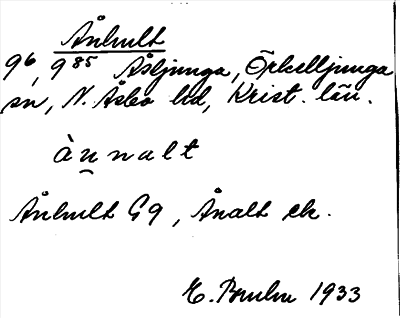 Ånhult
96, 9 85 Åsljunga, Örkelljunga
sn, N. Åsbo hd, Krist. län.
ànnalt
Ånhult G9, Ånalt ek.
1933